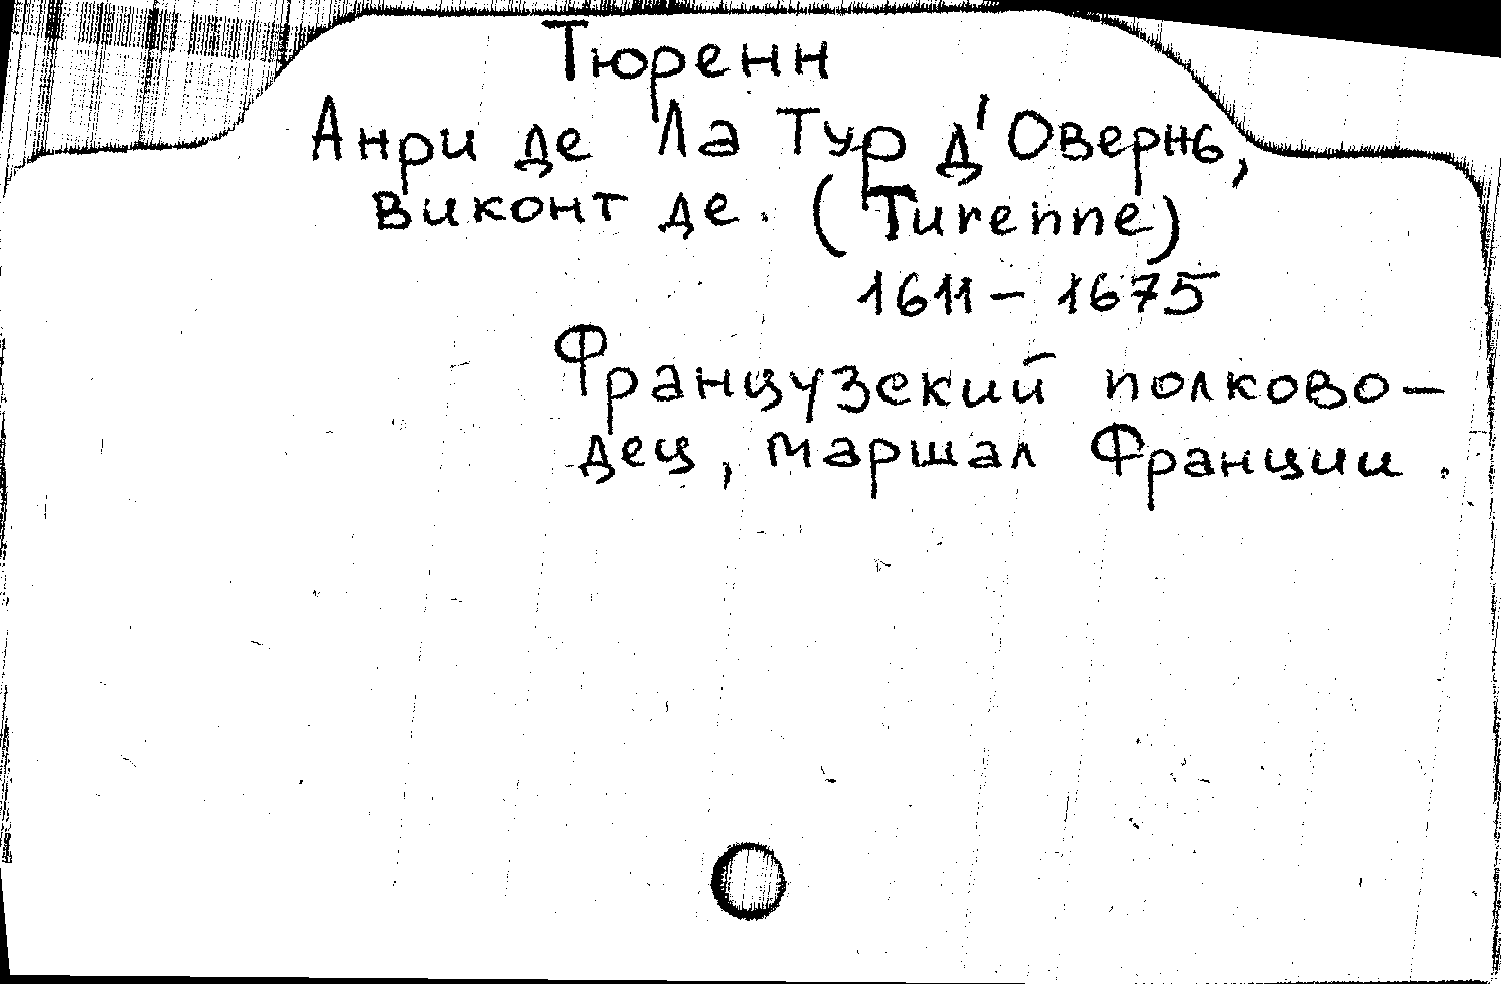 Тюренн
Анри де Ла Тур д'Овернь,
виконт де. (Turenne)
1611 – 1675
Французский полково-
дец, маршал Франции.